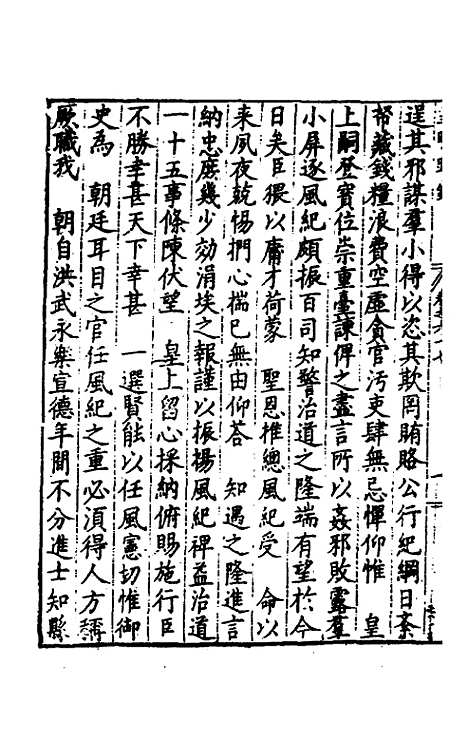 逞其邪謀羣小得以恣其欺罔賄賂公行紀綱日紊
帑藏錢糧浪費空虛貪官汚吏肆無忌憚仰惟　皇
上嗣登寶位崇重臺諫俾之盡言所以姦邪敗露羣
小屏逐風紀頗振百司知警治道之隆端有望於今
日矣臣猥以庸才荷蒙　聖恩惟總風紀受　命以
来夙夜兢惕捫心揣己無由仰荅　知遇之隆進言
納忠庶幾少効涓埃之報謹以振揚風紀裨益治道
一十五事條陳伏望　皇上留心採納俯賜施行臣
不勝幸甚天下幸甚　一選賢能以任風憲切惟御
史為　朝廷耳目之官任風紀之重必須得人方稱
厥職我　朝自洪武永樂宣德年間不分進士知縣